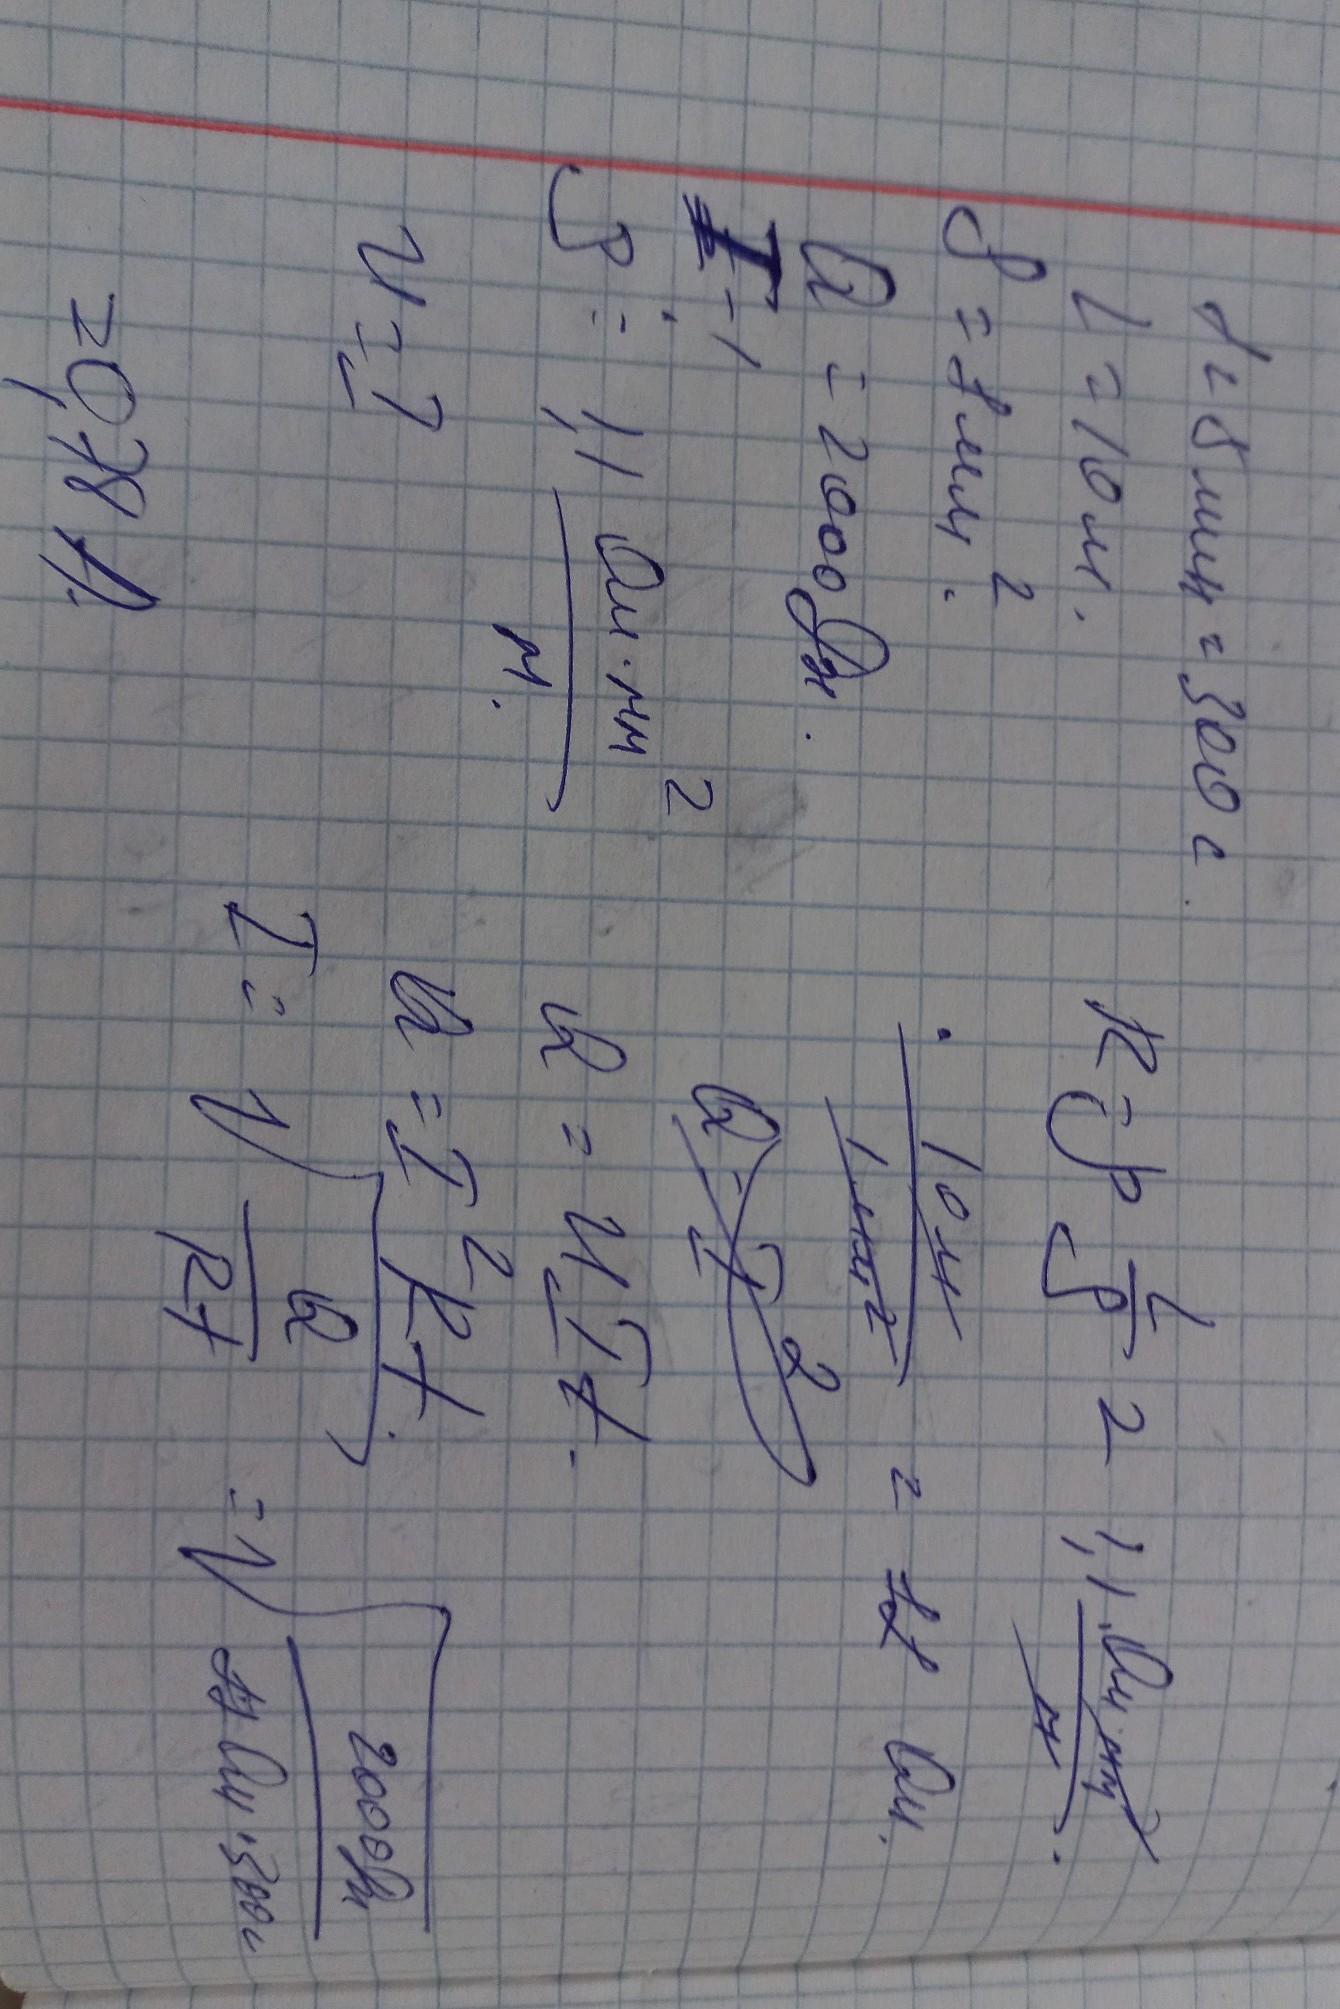 t = 5 мин = 300 с
l = 10 м.
S = 1 мм².
Q = 2000 Дж.
I - ?
ρ = 1,1 Ом·мм² / м.
U = ?
R = ρ l/S = 1,1 Ом·мм² / м ·
· 10 м / 1 мм² = 11 Ом.
Q = I²
Q = UIt.
Q = I²Rt.
I = √(Q / Rt) = √(2000 Дж / 11 Ом·300 с)
= 0,78 А.